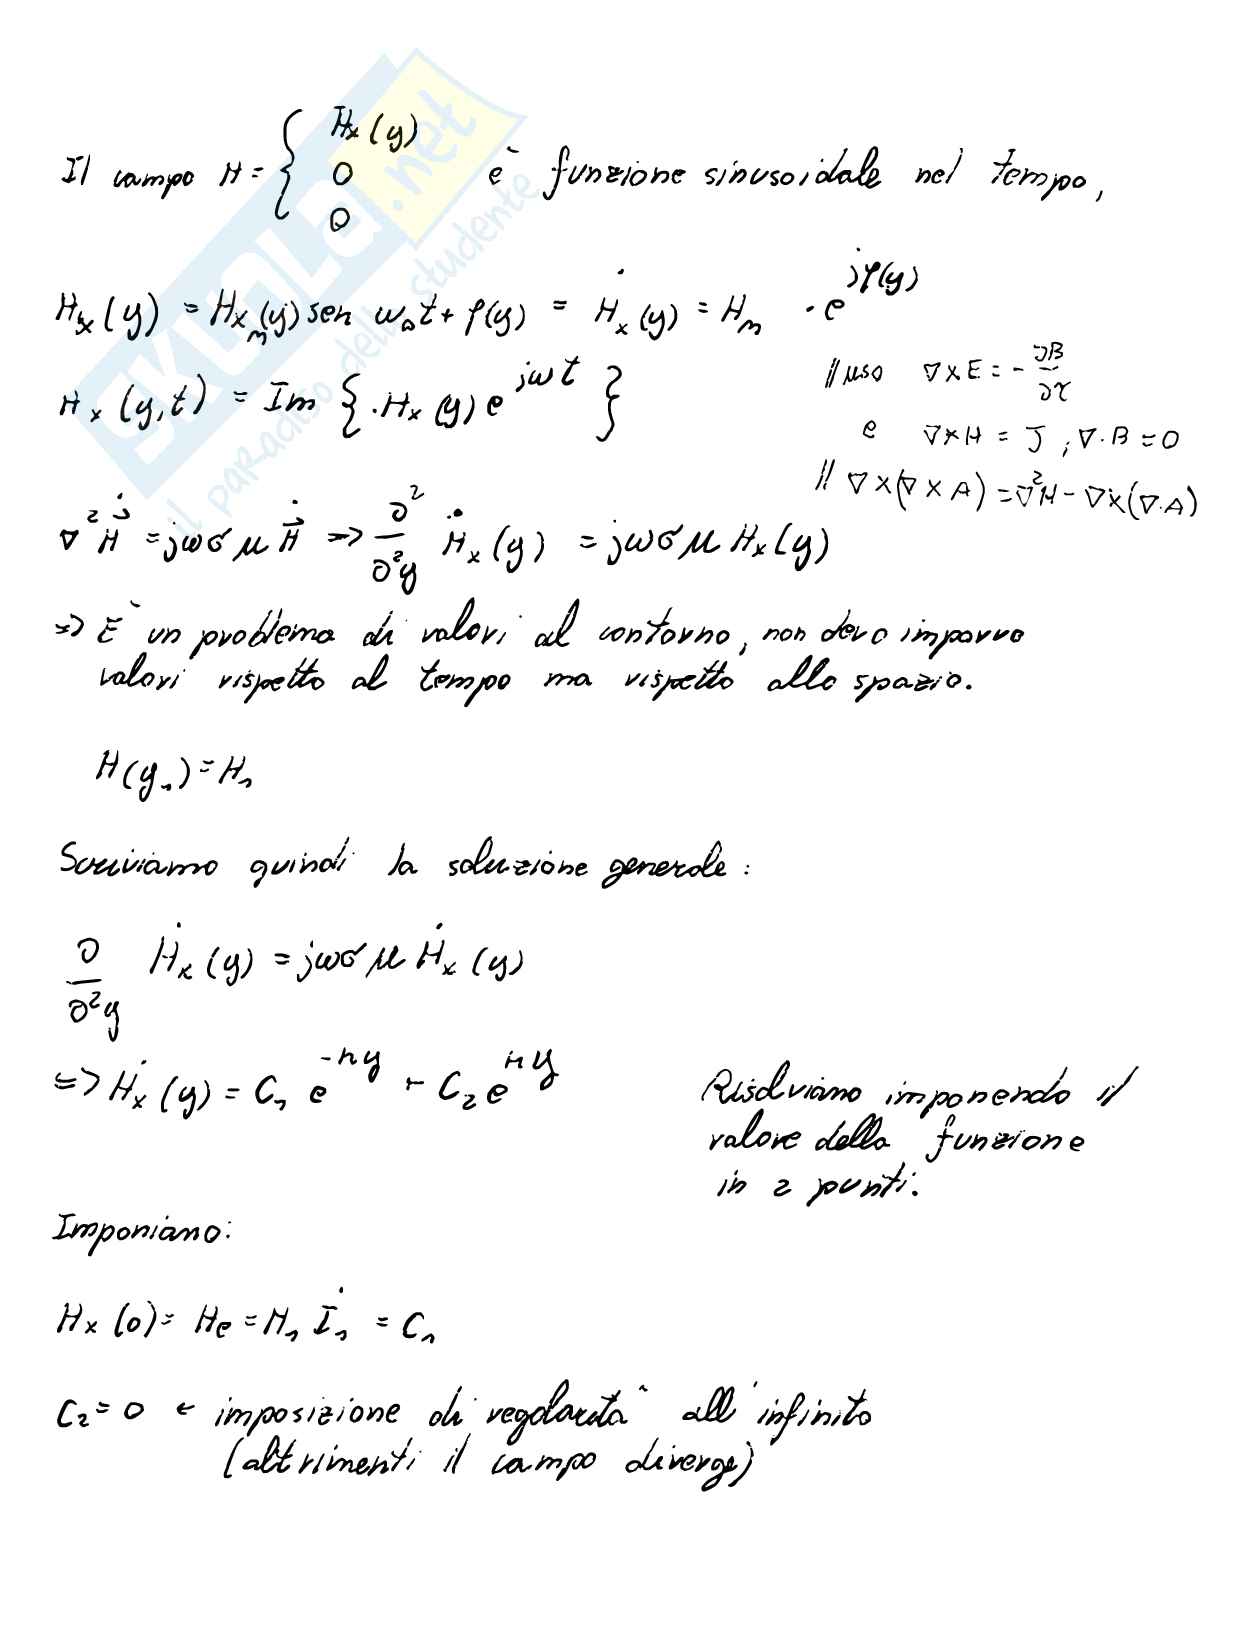 Il campo H = { Hx(y) 0 0 è funzione sinusoidale nel tempo,
Hx(y) = Hxm(y) sen ω0t + φ(y) = Ḣx(y) = Hm · e^jφ(y)
Hx(y,t) = Im { Ḣx(y) e^jωt }
// uso ∇×E = -∂B/∂t
e ∇×H = J ; ∇·B = 0
// ∇×(∇×A) = ∇²H - ∇×(∇·A)
∇²Ḣ = jωσμ Ḣ => ∂²/∂²y Ḣx(y) = jωσμ Hx(y)
=> È un problema di valori al contorno, non devo imporre
valori rispetto al tempo ma rispetto allo spazio.
H(y1) = H1
Scriviamo quindi la soluzione generale:
∂/∂²y Ḣx(y) = jωσμ Ḣx(y)
=> Ḣx(y) = C1 e^-ny + C2 e^ny
Risolviamo imponendo il
valore della funzione
in 2 punti.
Imponiamo:
Hx(0) = He = H1 İ1 = C1
C2 = 0 ← imposizione di regolarità all'infinito
(altrimenti il campo diverge)
SKUOLA.net
il paradiso dello studente